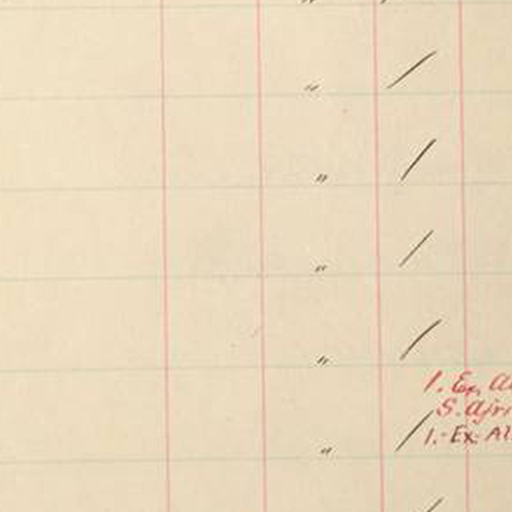 "
" /
" /
" /
" /
1. Ex. Al
S. Afri
" / 1.-Ex-Al